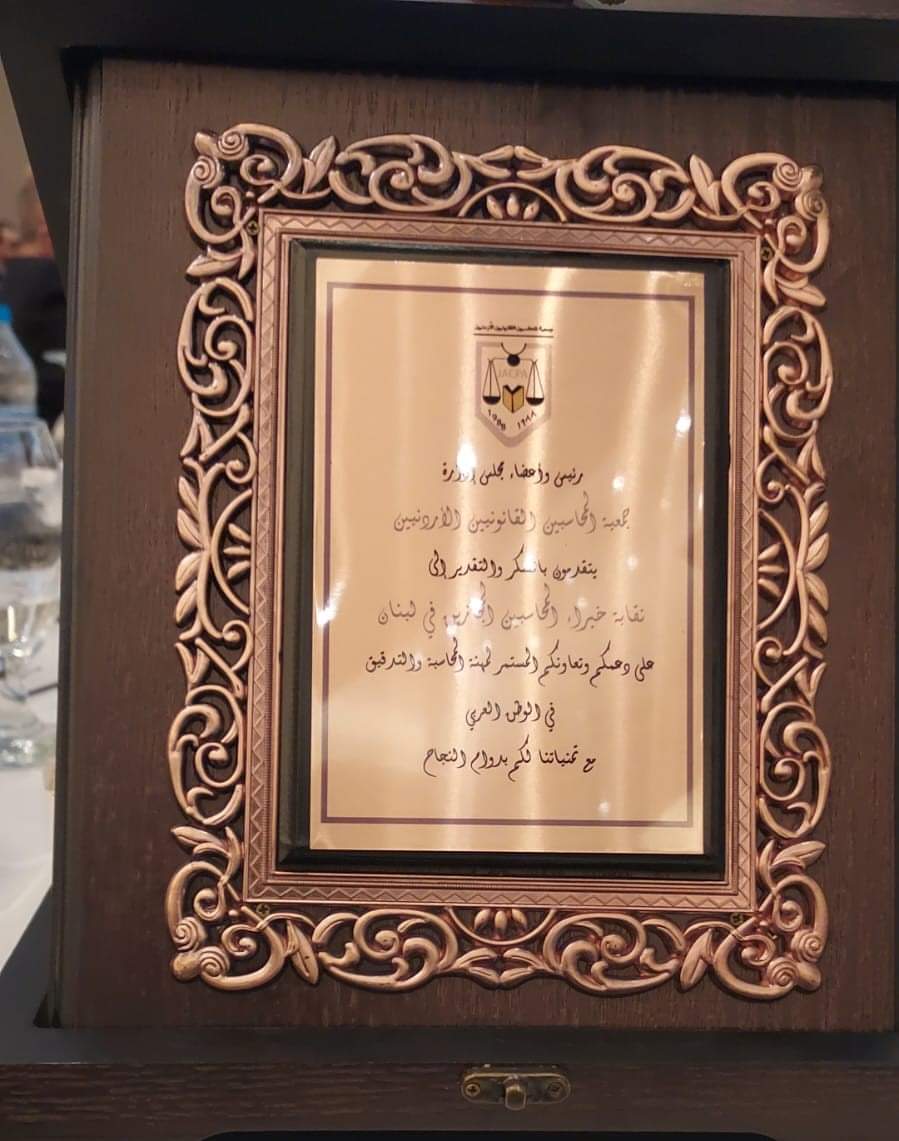 جمعية المحاسبين القانونيين الأردنيين
IACPA
١٩٨٨
رئيس وأعضاء مجلس إدارة
جمعية المحاسبين القانونيين الأردنيين
يتقدمون بالشكر والتقدير إلى
نقابة خبراء المحاسبين المجازين في لبنان
على دعمكم وتعاونكم المستمر لمهنة المحاسبة والتدقيق
في الوطن العربي
مع تمنياتنا لكم بدوام النجاح